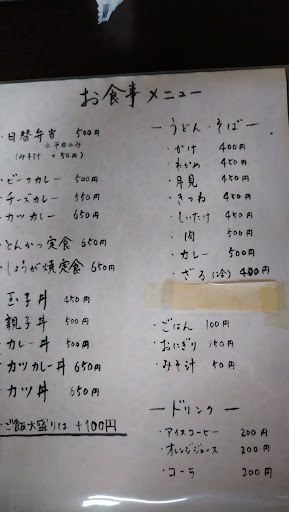 お食事メニュー
・日替弁当 500円
※平日のみ
(みそ汁 +50円)
・ビーフカレー 500円
・チーズカレー 550円
・カツカレー 650円
・とんかつ定食 650円
・しょうが焼定食 650円
・玉子丼 450円
・親子丼 500円
・カレー丼 500円
・カツカレー丼 650円
・カツ丼 650円
・ご飯大盛りは +100円
ー うどん・そば ー
・かけ 400円
・わかめ 450円
・月見 450円
・きつね 450円
・しいたけ 450円
・肉 500円
・カレー 500円
・ざる(冷) 400円
・ごはん 100円
・おにぎり 150円
・みそ汁 50円
ー ドリンク ー
・アイスコーヒー 200円
・オレンジジュース 200円
・コーラ 200円